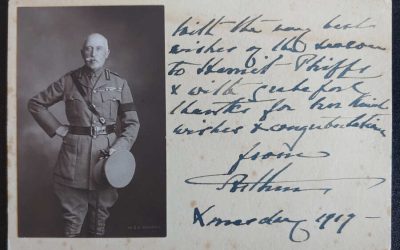 With the very best
wishes of the season
to Harriet Phipps
& with grateful
thanks for her kind
wishes & congratulation
from
Arthur
Xmas day 1917-